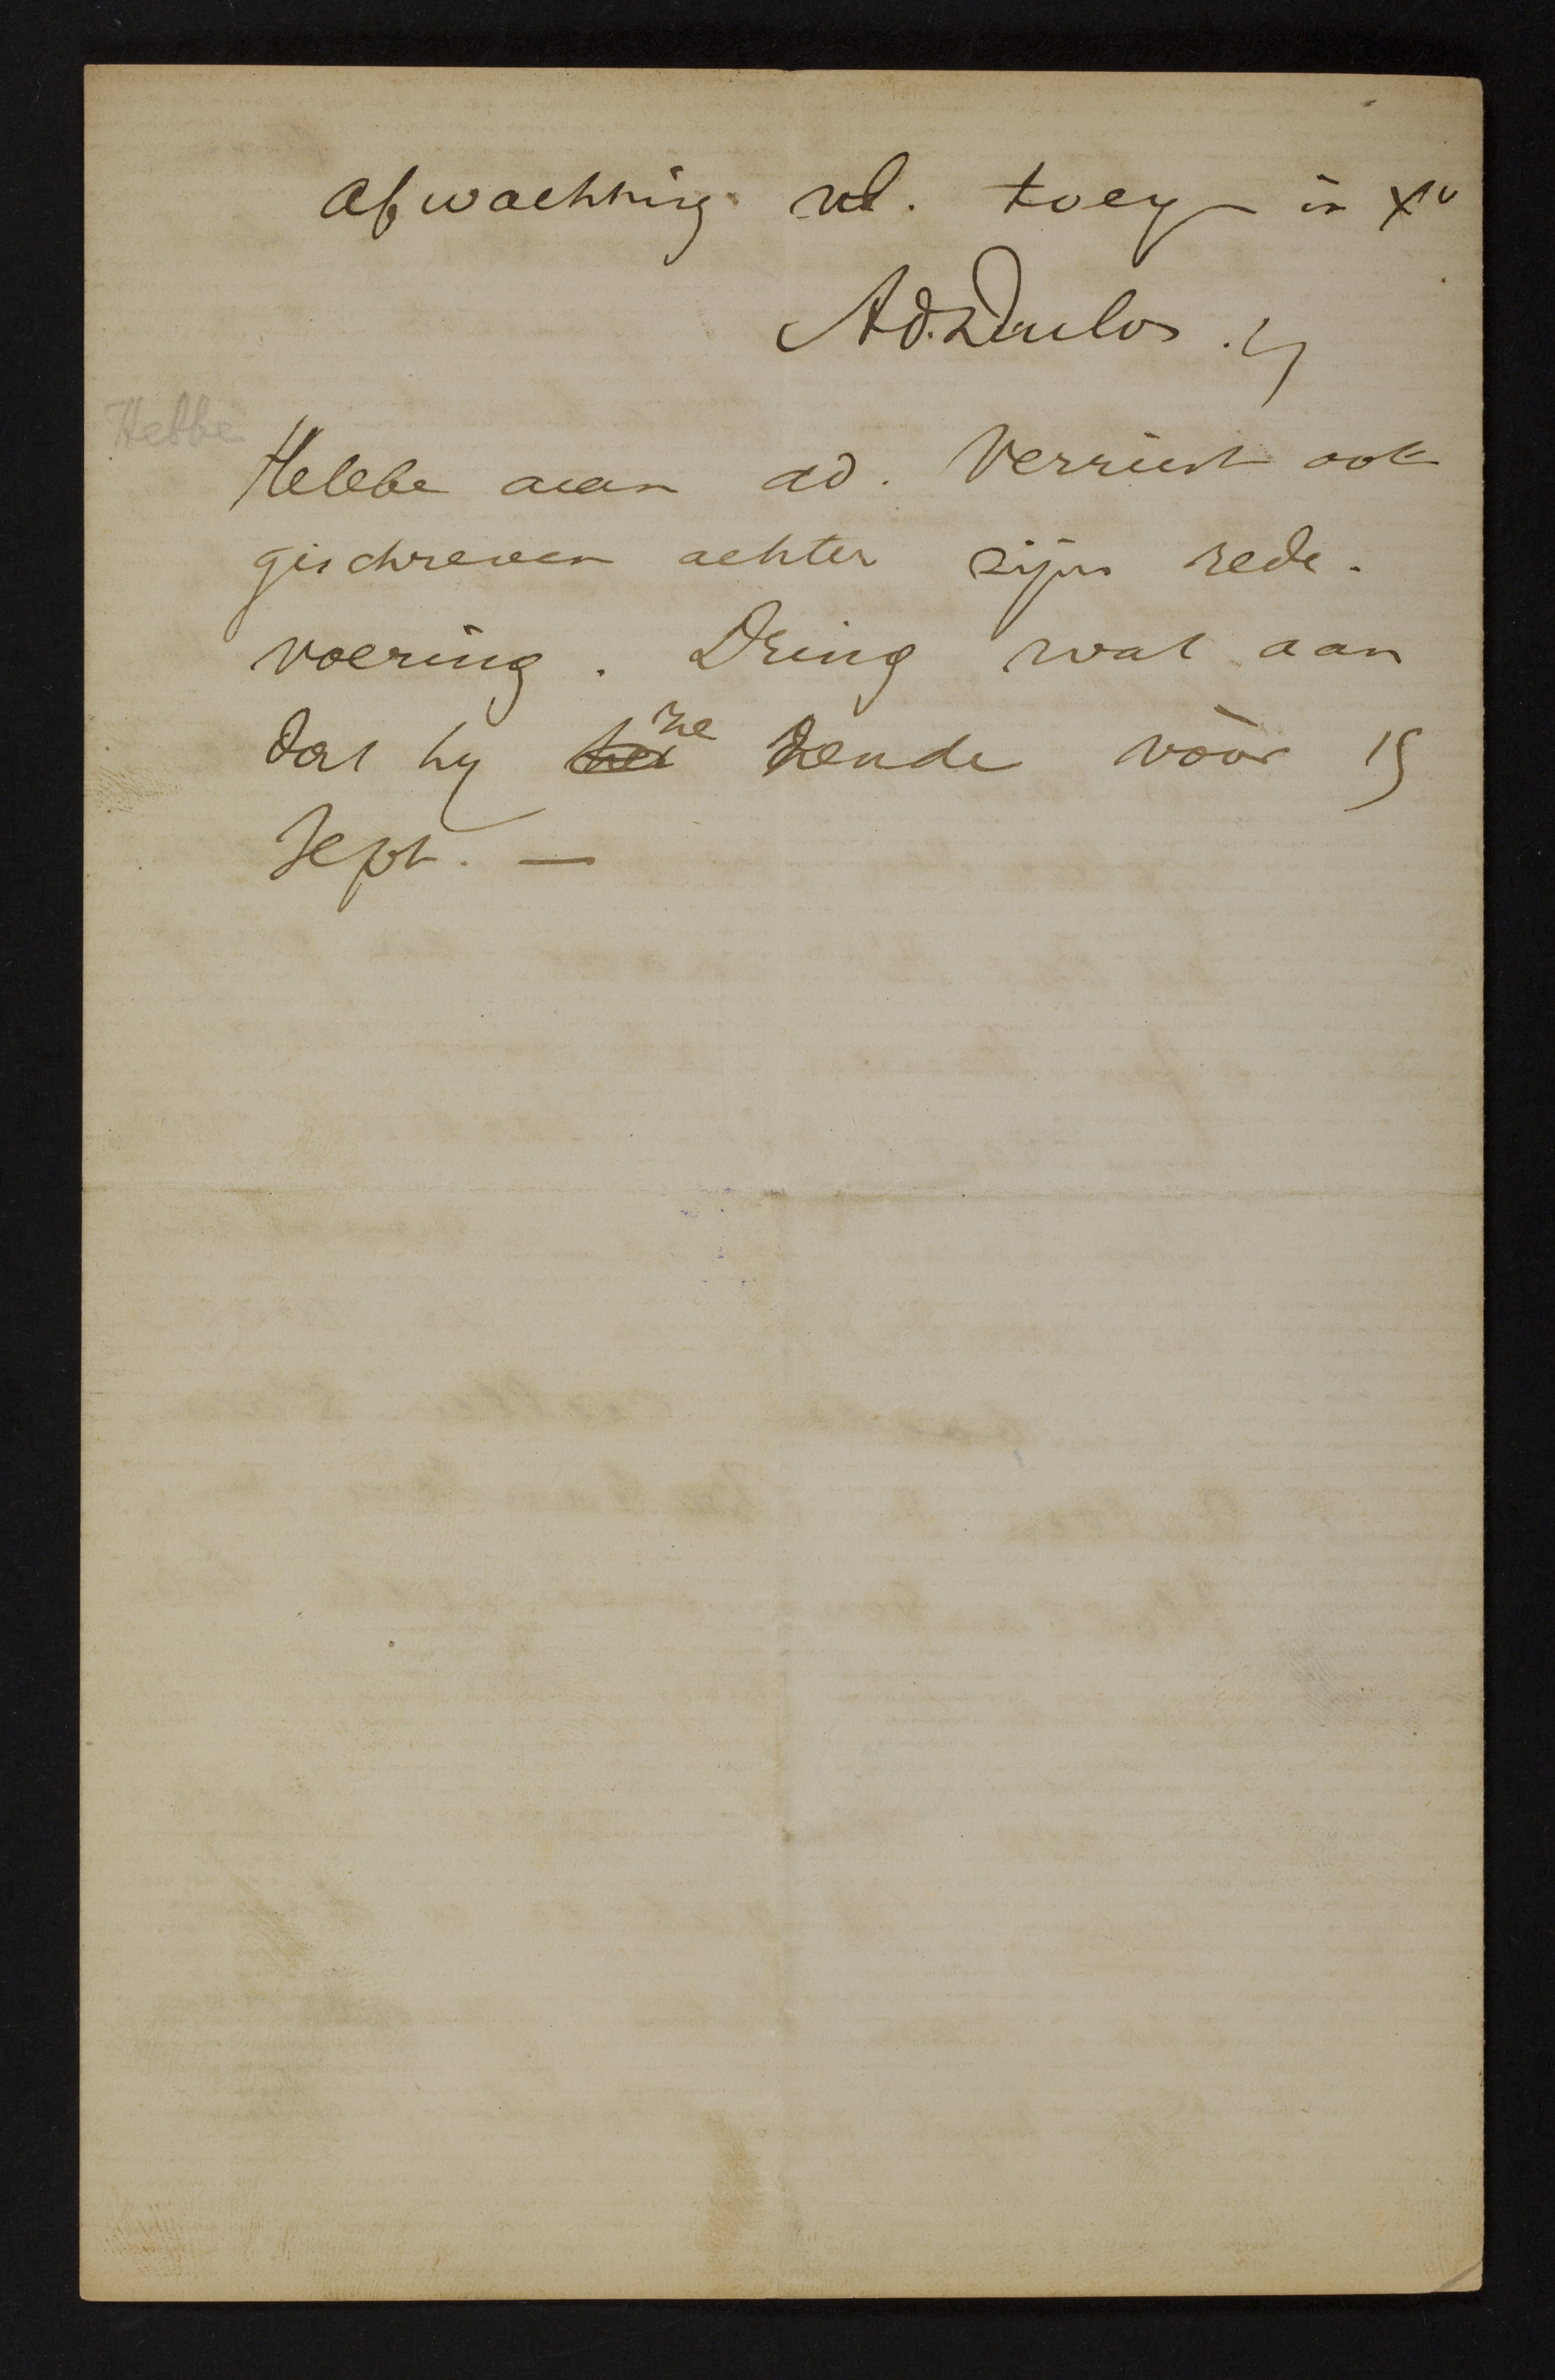 afwachting ul. toeg in Xto
Ad. Duclos. 
Hebbe
Hebbe aan ad. Verriest ook
geschreven achter zijn rede-
voering. Dring wat aan
dat hy ze zende vòòr 15
Sept. —